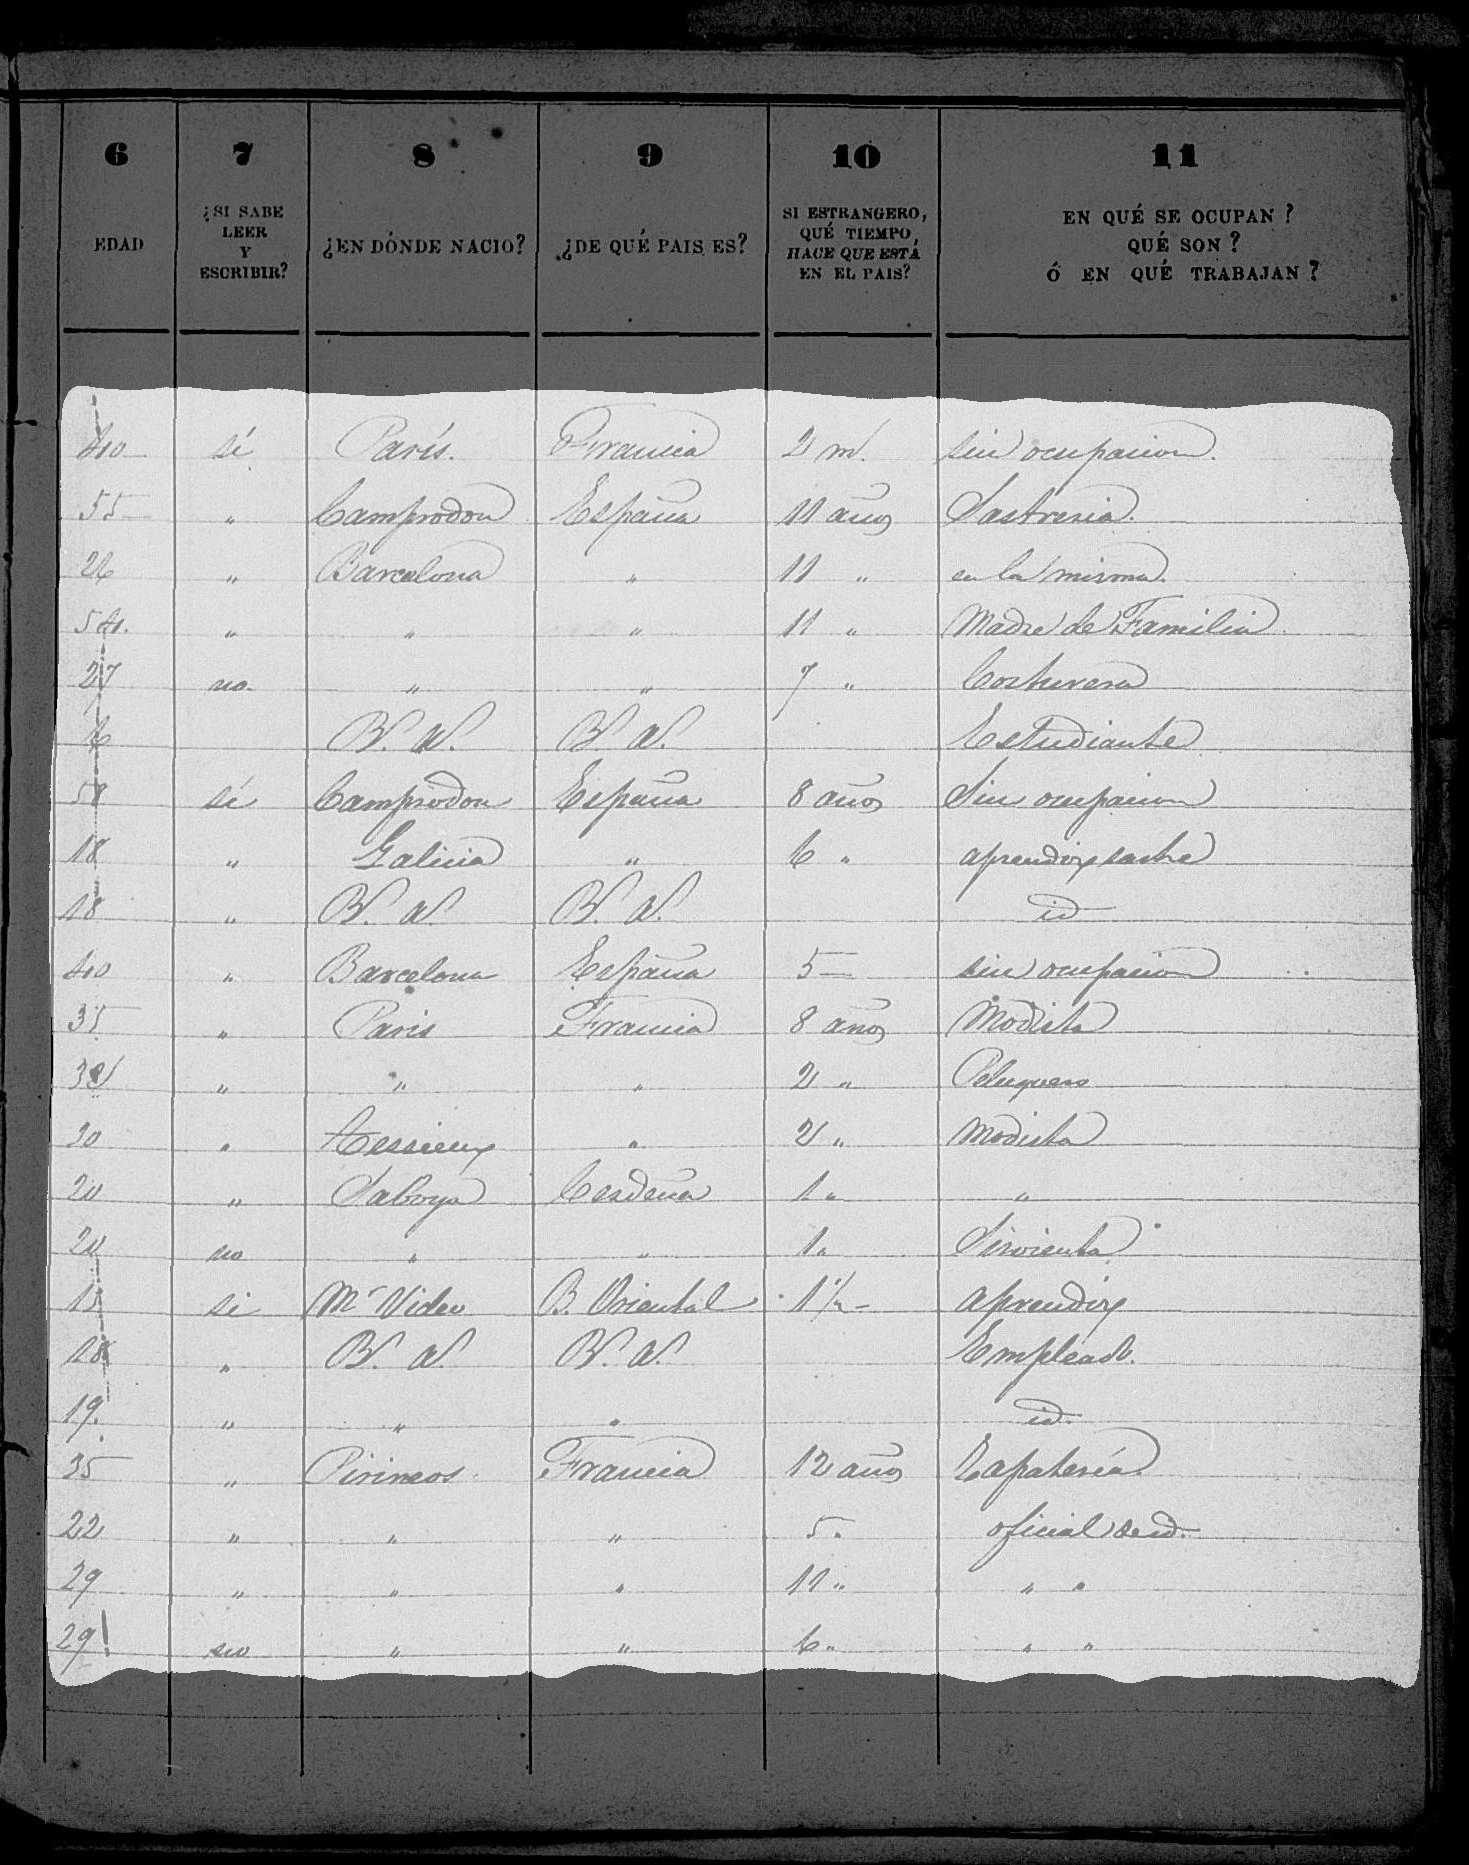 6 7 8 9 10 11
EDAD ¿SI SABE LEER Y ESCRIBIR? ¿EN DÓNDE NACIO? ¿DE QUÉ PAIS ES? SI ESTRANGERO, QUÉ TIEMPO HACE QUE ESTÁ EN EL PAIS? EN QUÉ SE OCUPAN? QUÉ SON? Ó EN QUÉ TRABAJAN?
40 sí París. Francia 2 m. sin ocupacion.
55 " Camprodon España 11 años Sastreria.
26 " Barcelona " 11 " en la misma.
54. " " " 11 " Madre de Familia
27 no " " 7 " Costurera
6 B. A. B. A. Estudiante
58 sí Camprodon España 8 años Sin ocupacion
18 " Galicia " 6 " aprendiz sastre
18 " B. A. B. A. id
40 " Barcelona España 5 sin ocupacion
35 " Paris Francia 8 años Modista
" " " 2 " Peluquero
30 " " 2 " Modista
20 " Saboya Cerdeña 1 " "
20 no " " 1 " Sirvienta
si Mr Video B. Oriental 1 1/2 aprendiz
18 " B. A. B. A. Empleado.
19. " " " id.
35 " Pirineos. Francia 12 años Zapatería
22 " " " 5 " oficial de id.
29 " " " 11 " " "
29 no " " 6 " " "